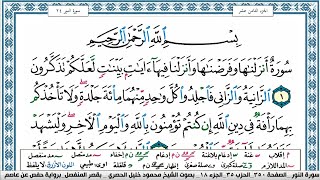 بِسْمِ اللَّهِ الرَّحْمَٰنِ الرَّحِيمِ
سُورَةٌ أَنزَلْنَاهَا وَفَرَضْنَاهَا وَأَنزَلْنَا فِيهَا آيَاتٍ بَيِّنَاتٍ لَّعَلَّكُمْ تَذَكَّرُونَ
١ الزَّانِيَةُ وَالزَّانِي فَاجْلِدُوا كُلَّ وَاحِدٍ مِّنْهُمَا مِائَةَ جَلْدَةٍ وَلَا تَأْخُذْكُم
بِهِمَا رَأْفَةٌ فِي دِينِ اللَّهِ إِن كُنتُمْ تُؤْمِنُونَ بِاللَّهِ وَالْيَوْمِ الْآخِرِ وَلْيَشْهَدْ
سورة النور الصفحة ٣٥٠ الحزب ٣٥ الجزء ١٨ بصوت الشيخ محمود خليل الحصري برواية حفص عن عاصم